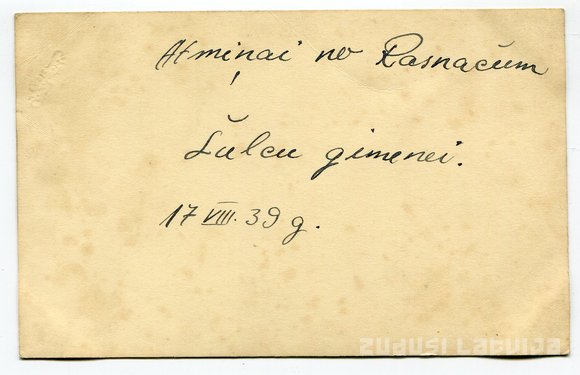 Atmiņai no Rasnačum
Šulcu gimenei.
17 VIII. 39 g.
zudusi latvija